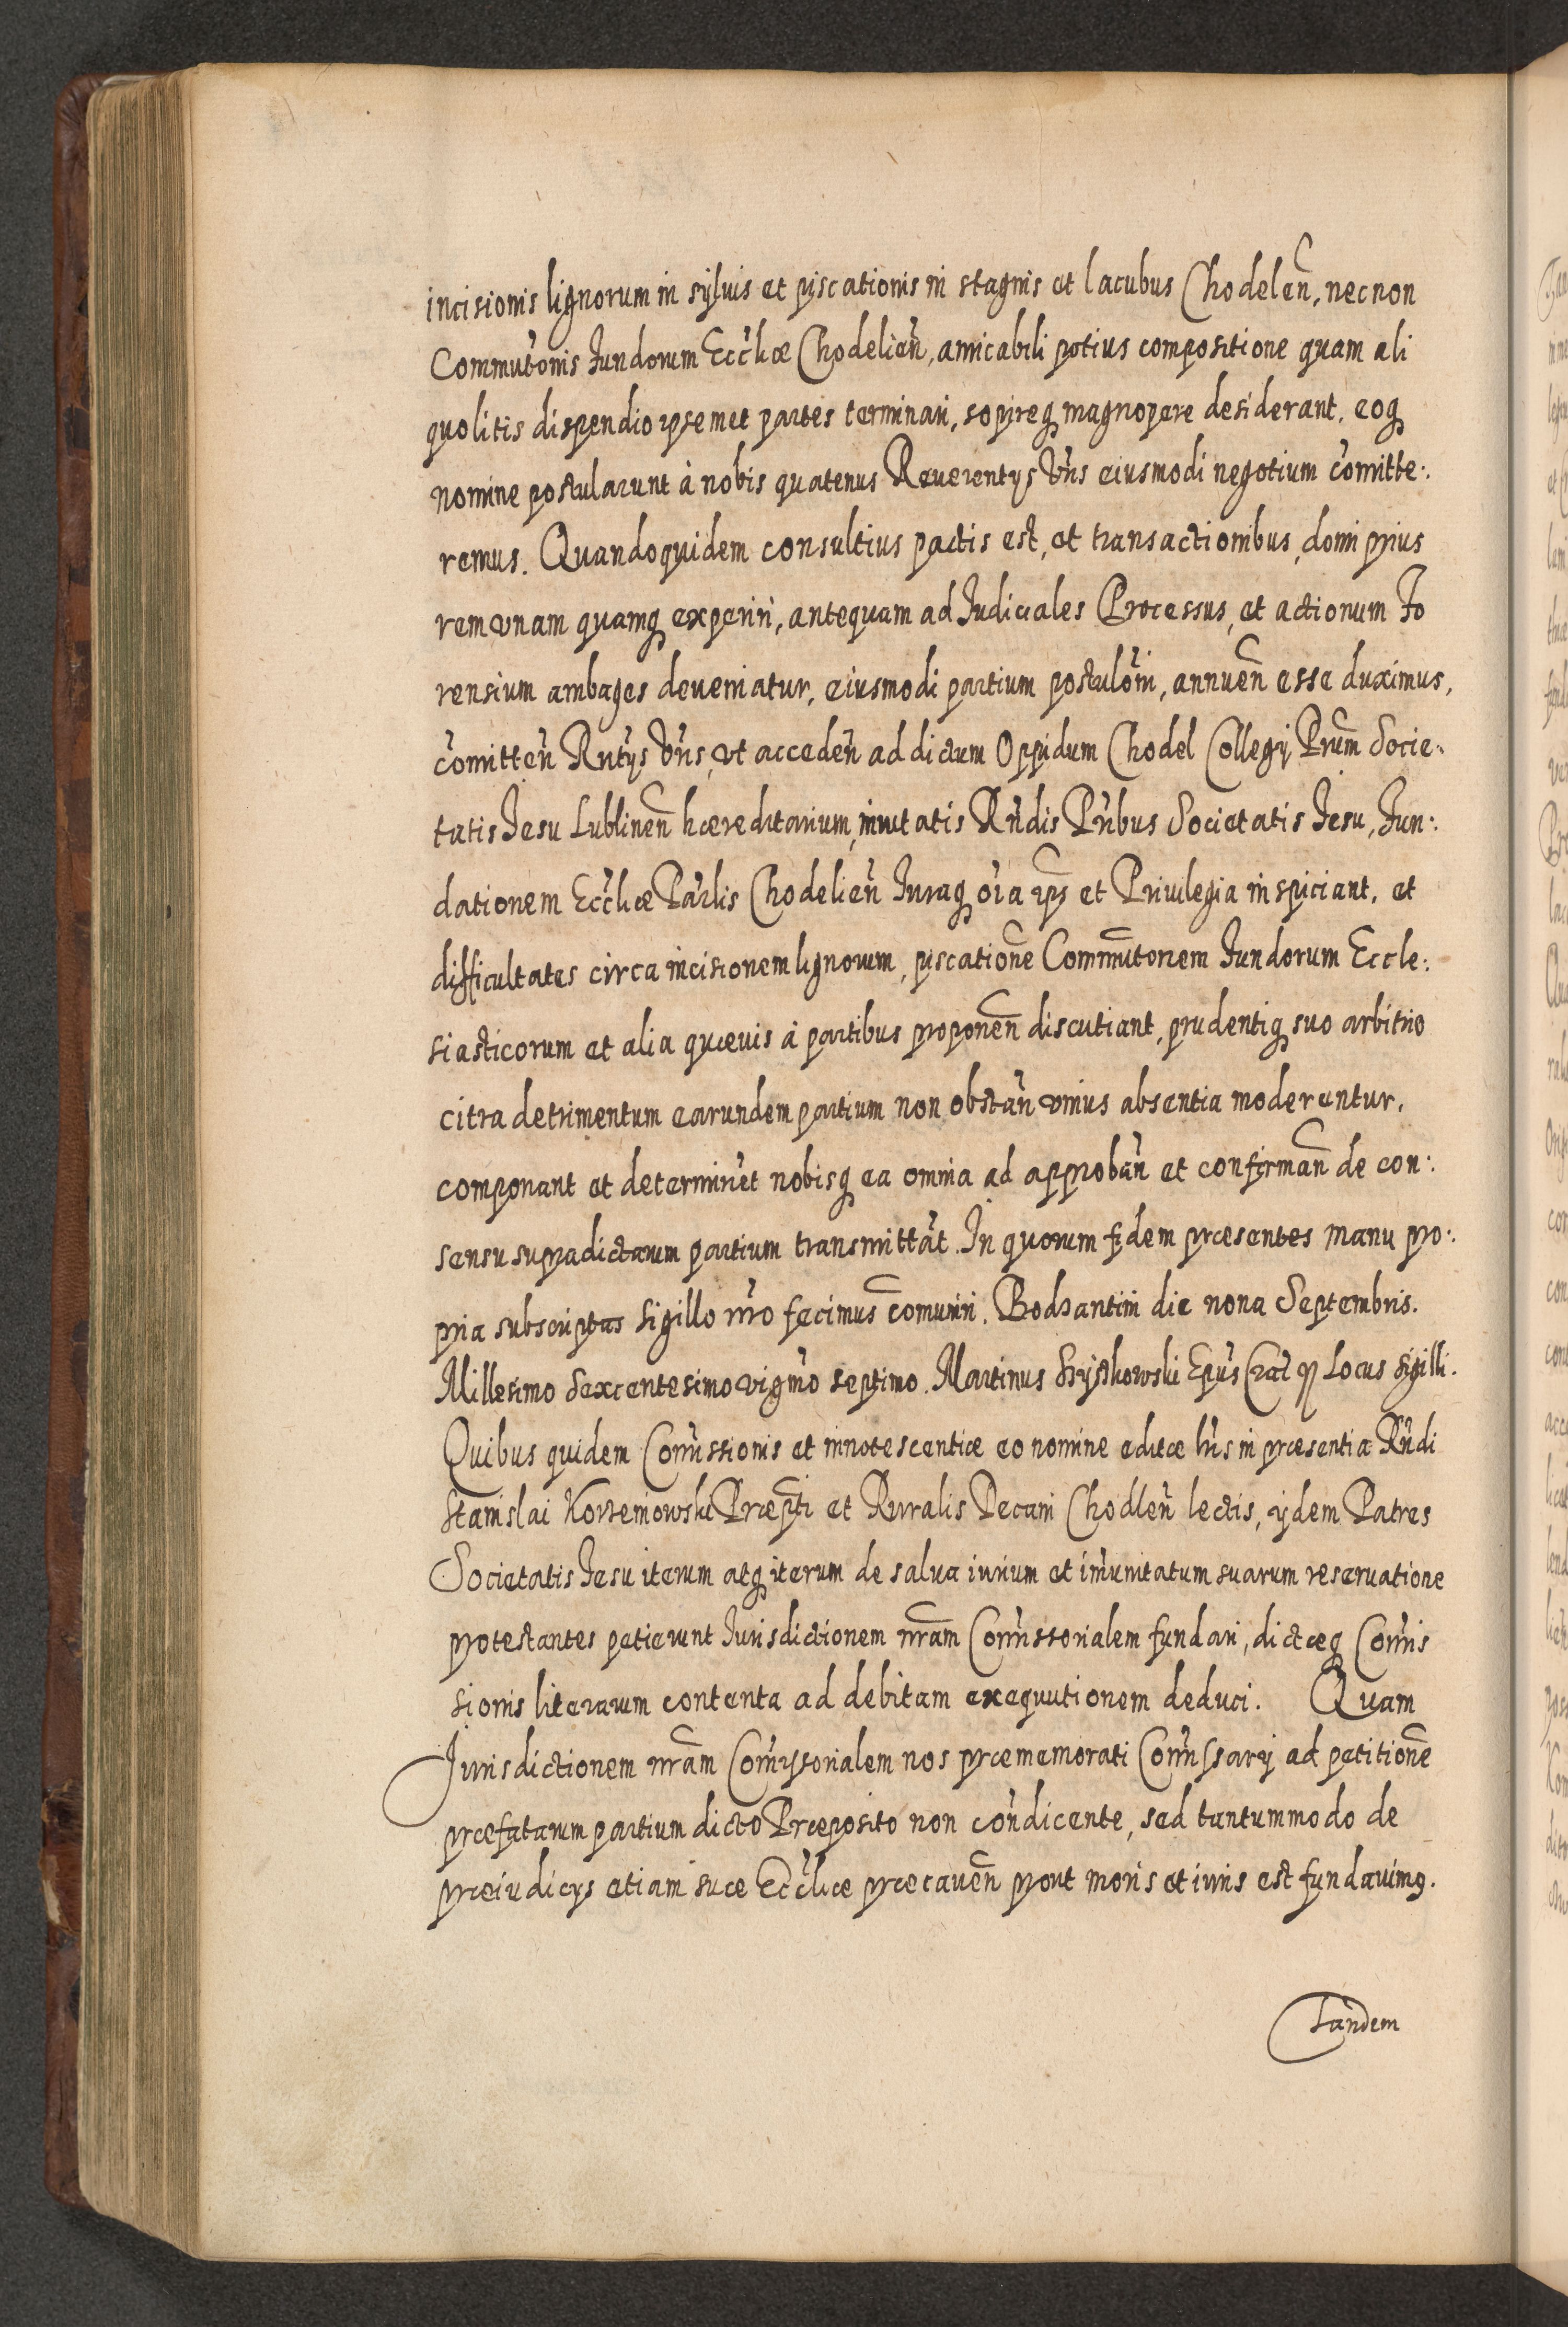 incisionis lignorum in syluis et piscationis in stagnis et lacubus Chodelen̄, necnon
Commutōnis fundorum Eccl̄iæ Chodelien̄, amicabili potius compositione quam ali
quo litis dispendio ipsemet partes terminari, sopireq₃ magnopere desiderant, eoq₃
nomine postularunt à nobis quatenus Reuerentijs Vr̄is eiusmodi negotium com̄itte:
remus. Quandoquidem consultius pactis est, et transactionibus, domi prius
rem vnam quamq₃ experiri, antequam ad Iudiciales Processus, et actionum fo
rensium ambages deueniatur, eiusmodi partium postulōni, annuen̄ esse duximus,
com̄itten̄ Rn̄tijs Vr̄is, vt acceden̄ ad dictum Oppidum Chodel Collegij Prūm Socie:
tatis Iesu Lublinen̄ hæreditarium, inuitatis Rn̄dis Pr̄ibus Societatis Iesu, fun:
dationem Eccl̄iæ Par̄lis Chodelien̄ Iuraq₃ oīa ip̄s et Priuilegia inspiciant, et
difficultates circa incisionem lignorum, piscationē Commūtonem fundorum Eccle:
siasticorum et alia quæuis à partibus proponen̄ discutiant, prudentiq₃ suo arbitrio
citra detrimentum earundem partium non obstan̄ vnius absentia moderentur,
componant et determinēt nobisq₃ ea omnia ad approban̄ et confirman̄ de con:
sensu supradictarum partium transmittāt. In quorum fidem præsentes manu pro:
pria subscriptas sigillo nr̄o fecimus com̄uniri. Bodzantini die nona Septembris.
Millesimo Sexcentesimo vigm̄o septimo. Martinus Szyszkowski Ep̄us Crac̄ Locus sigilli.
Quibus quidem Com̄issionis et innotescentiæ eo nomine editæ lr̄is in præsentia Rn̄di
Stanislai Korzeniowski Præp̄ti et Ruralis Decani Chodlen̄ lectis, ijdem Patres
Societatis Iesu iterum atq₃ iterum de salua iurium et im̄unitatum suarum reseruatione
protestantes petierunt Iurisdictionem nr̄am Com̄issorialem fundari, dictæq₃ Com̄is
sionis literarum contenta ad debitam exequutionem deduci. Quam
Iurisdictionem nr̄am Com̄issorialem nos præmemorati Com̄issarij ad petitionē
præfatarum partium dicto Præposito non con̄dicente, sed tantummodo de
præiudicijs etiam suæ Eccl̄iæ præcauen̄ prout moris et iuris est fundauimꝰ.
Tandem